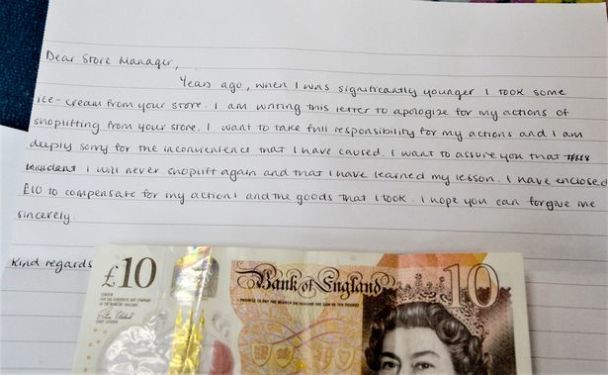 Dear Store Manager,
Years ago, when I was significantly younger I took some
ice-cream from your store. I am writing this letter to apologize for my actions of
shoplifting from your store. I want to take full responsibility for my actions and I am
deeply sorry for the inconvenience that I have caused. I want to assure you that
I will never shoplift again and that I have learned my lesson. I have enclosed
£10 to compensate for my actions and the goods that I took. I hope you can forgive me
sincerely.
Kind regards
£10
Bank of England
10